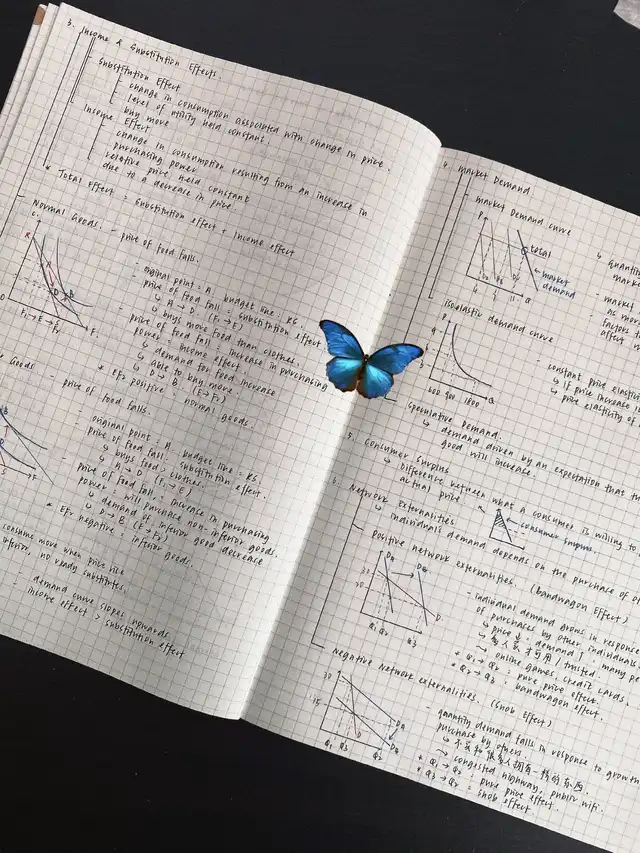 3. Income & Substitution Effects.
Substitution Effect
change in consumption associated with change in price.
level of utility held constant.
buy more
Income Effect
change in consumption resulting from an increase in
purchasing power
relative price held constant
due to a decrease in price.
* Total Effect = Substitution effect + Income effect
Normal Goods. - price of food falls.
C.
R
A
D
B
0
F₁→E→F₂
F.
- original point = A, budget line = RS.
- price of food fall = substitution effect
↳ A→D (F₁→E)
↳ buys more food than clothes.
- price of food fall = increase in purchasing
power = income effect
↳ demand for food increase
↳ able to buy more
↳ D→B (E→F₂)
* EF₂ positive = normal goods.
Goods - price of food falls.
- original point = A, budget line = RS.
price of food fall = substitution effect.
↳ buys food > clothes
↳ A→D (F₁→E)
price of food fall = increase in purchasing
power = will purchase non-inferior goods.
↳ demand of inferior good decrease
↳ D→B (E→F₂)
* EF₂ negative = inferior goods.
consume more when price rise
inferior, no ready substitutes.
- demand curve slopes upwards.
- income effect > substitution effect
4. Market Demand
market demand curve
P
total
market
demand
Q
isoelastic demand curve
P
Q
600 900 1800
- constant price elasti
↳ if price increase
↳ price elasticity of
speculative demand.
↳ demand driven by an expectation that the
good will increase.
5. Consumer Surplus
↳ difference between what a consumer is willing to
actual price
consumer surplus
6. Network Externalities
↳ individual's demand depends on the purchase of ot
Positive network externalities. (bandwagon effect)
30
20
D
Q₁ Q₂ Q₃
- individual demand grows in response
of purchases by other individuals
↳ price ↓ = demand ↑ : many pe
→ online games, credit cards.
* Q₁→Q₂ = pure price effect.
* Q₂→Q₃ = bandwagon effect.
Negative Network Externalities. (snob Effect)
30
15
D
Q₁ Q₃ Q₂
- quantity demand falls in response to growth
purchase by others.
↳ 不喜和很多人拥有一样的东西.
→ congested highway, public wifi.
* Q₁→Q₂ = pure price effect.
* Q₃→Q₂ = snob effect.